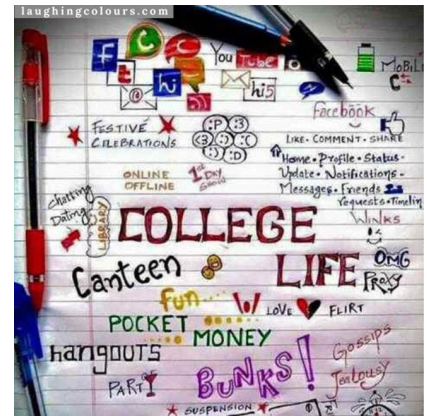 laughingcolours.com
You Tube
hi5
MOBILE
facebook
FESTIVE
CELEBRATIONS
:P :3
LIKE • COMMENT • SHARE
Home • Profile • Status •
Update • Notifications •
Messages • Friends
requests • Timeline
ONLINE
OFFLINE
1st DAY
Chatting
Dating
LIBRARY
COLLEGE
WINKS
Canteen
LIFE
OMG
PROXY
fun....
LOVE
FLIRT
POCKET
MONEY
hangouts
Gossips
Jealousy
PARTY
BUNKS!
SUSPENSION